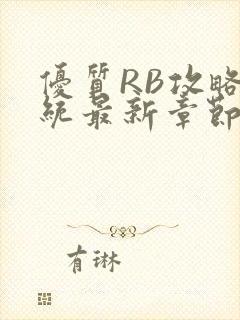 優質RB攻略
統最新章節
有琳